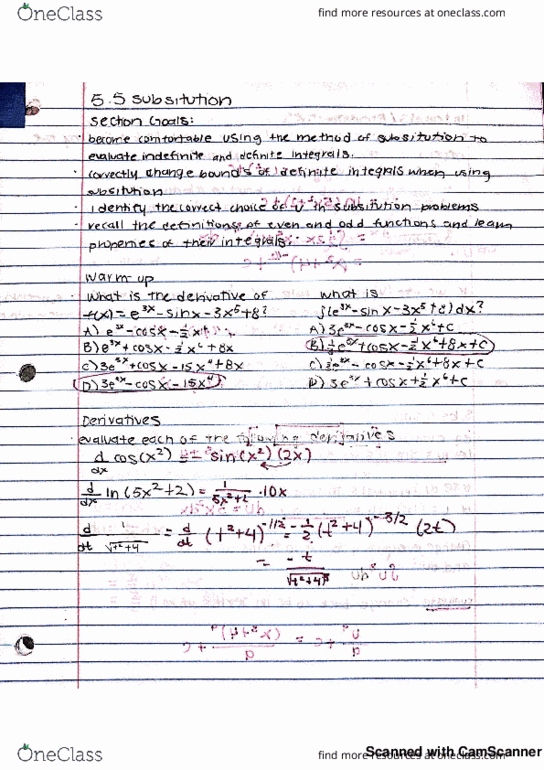 OneClass find more resources at oneclass.com
5.5 subsitution
section Goals:
· become comfortable using the method of subsitution to
evaluate indefinite and definite integrals.
· correctly change bounds of definite integrals when using
subsitution
· identify the correct choice of U in subsitution problems
· recall the definitions of even and odd functions and learn
properties of their integrals
Warm up
· What is the derivative of
f(x)=e^3x-sinx-3x^5+8?
B) e^3x+cosx-½x^6+8x
C) 3e^3x+cosx-15x^4+8x
D) 3e^3x-cosx-15x^4
what is
∫(e^3x-sinx-3x^5+8)dx?
A) 3e^3x-cosx-½x^6+c
B) ⅓e^3x+cosx-½x^6+8x+c
C) ⅓e^3x-cosx-½x^6+8x+c
D) 3e^3x+cosx+½x^6+c
Derivatives
· evaluate each of the following derivatives
d/dx cos(x²) = -sin(x²)(2x)
d/dx ln(5x²+2) = 1/(5x²+2) · 10x
d/dt 1/√(t²+4) = d/dt (t²+4)^-1/2 = -1/2(t²+4)^-3/2 (2t)
= -t/√(t²+4)³
Scanned with CamScanner
OneClass find more resources at oneclass.com